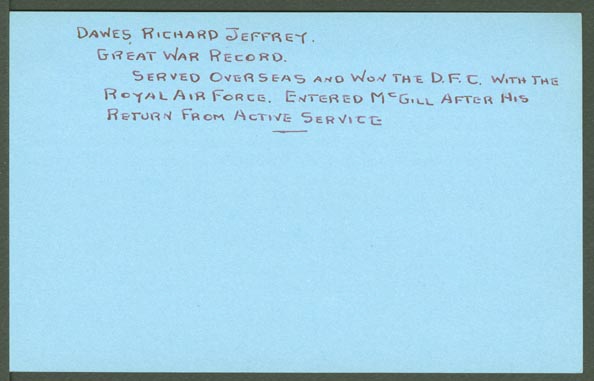 DAWES RICHARD JEFFREY.
GREAT WAR RECORD.
SERVED OVERSEAS AND WON THE D.F.C. WITH THE
ROYAL AIR FORCE. ENTERED McGILL AFTER HIS
RETURN FROM ACTIVE SERVICE